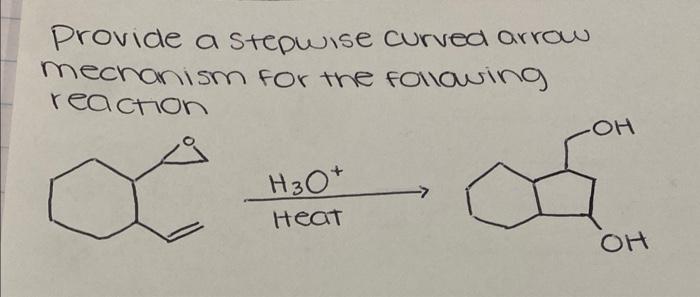 Provide a stepwise curved arrow
mechanism for the following
reaction
O
H3O+
Heat
OH
OH